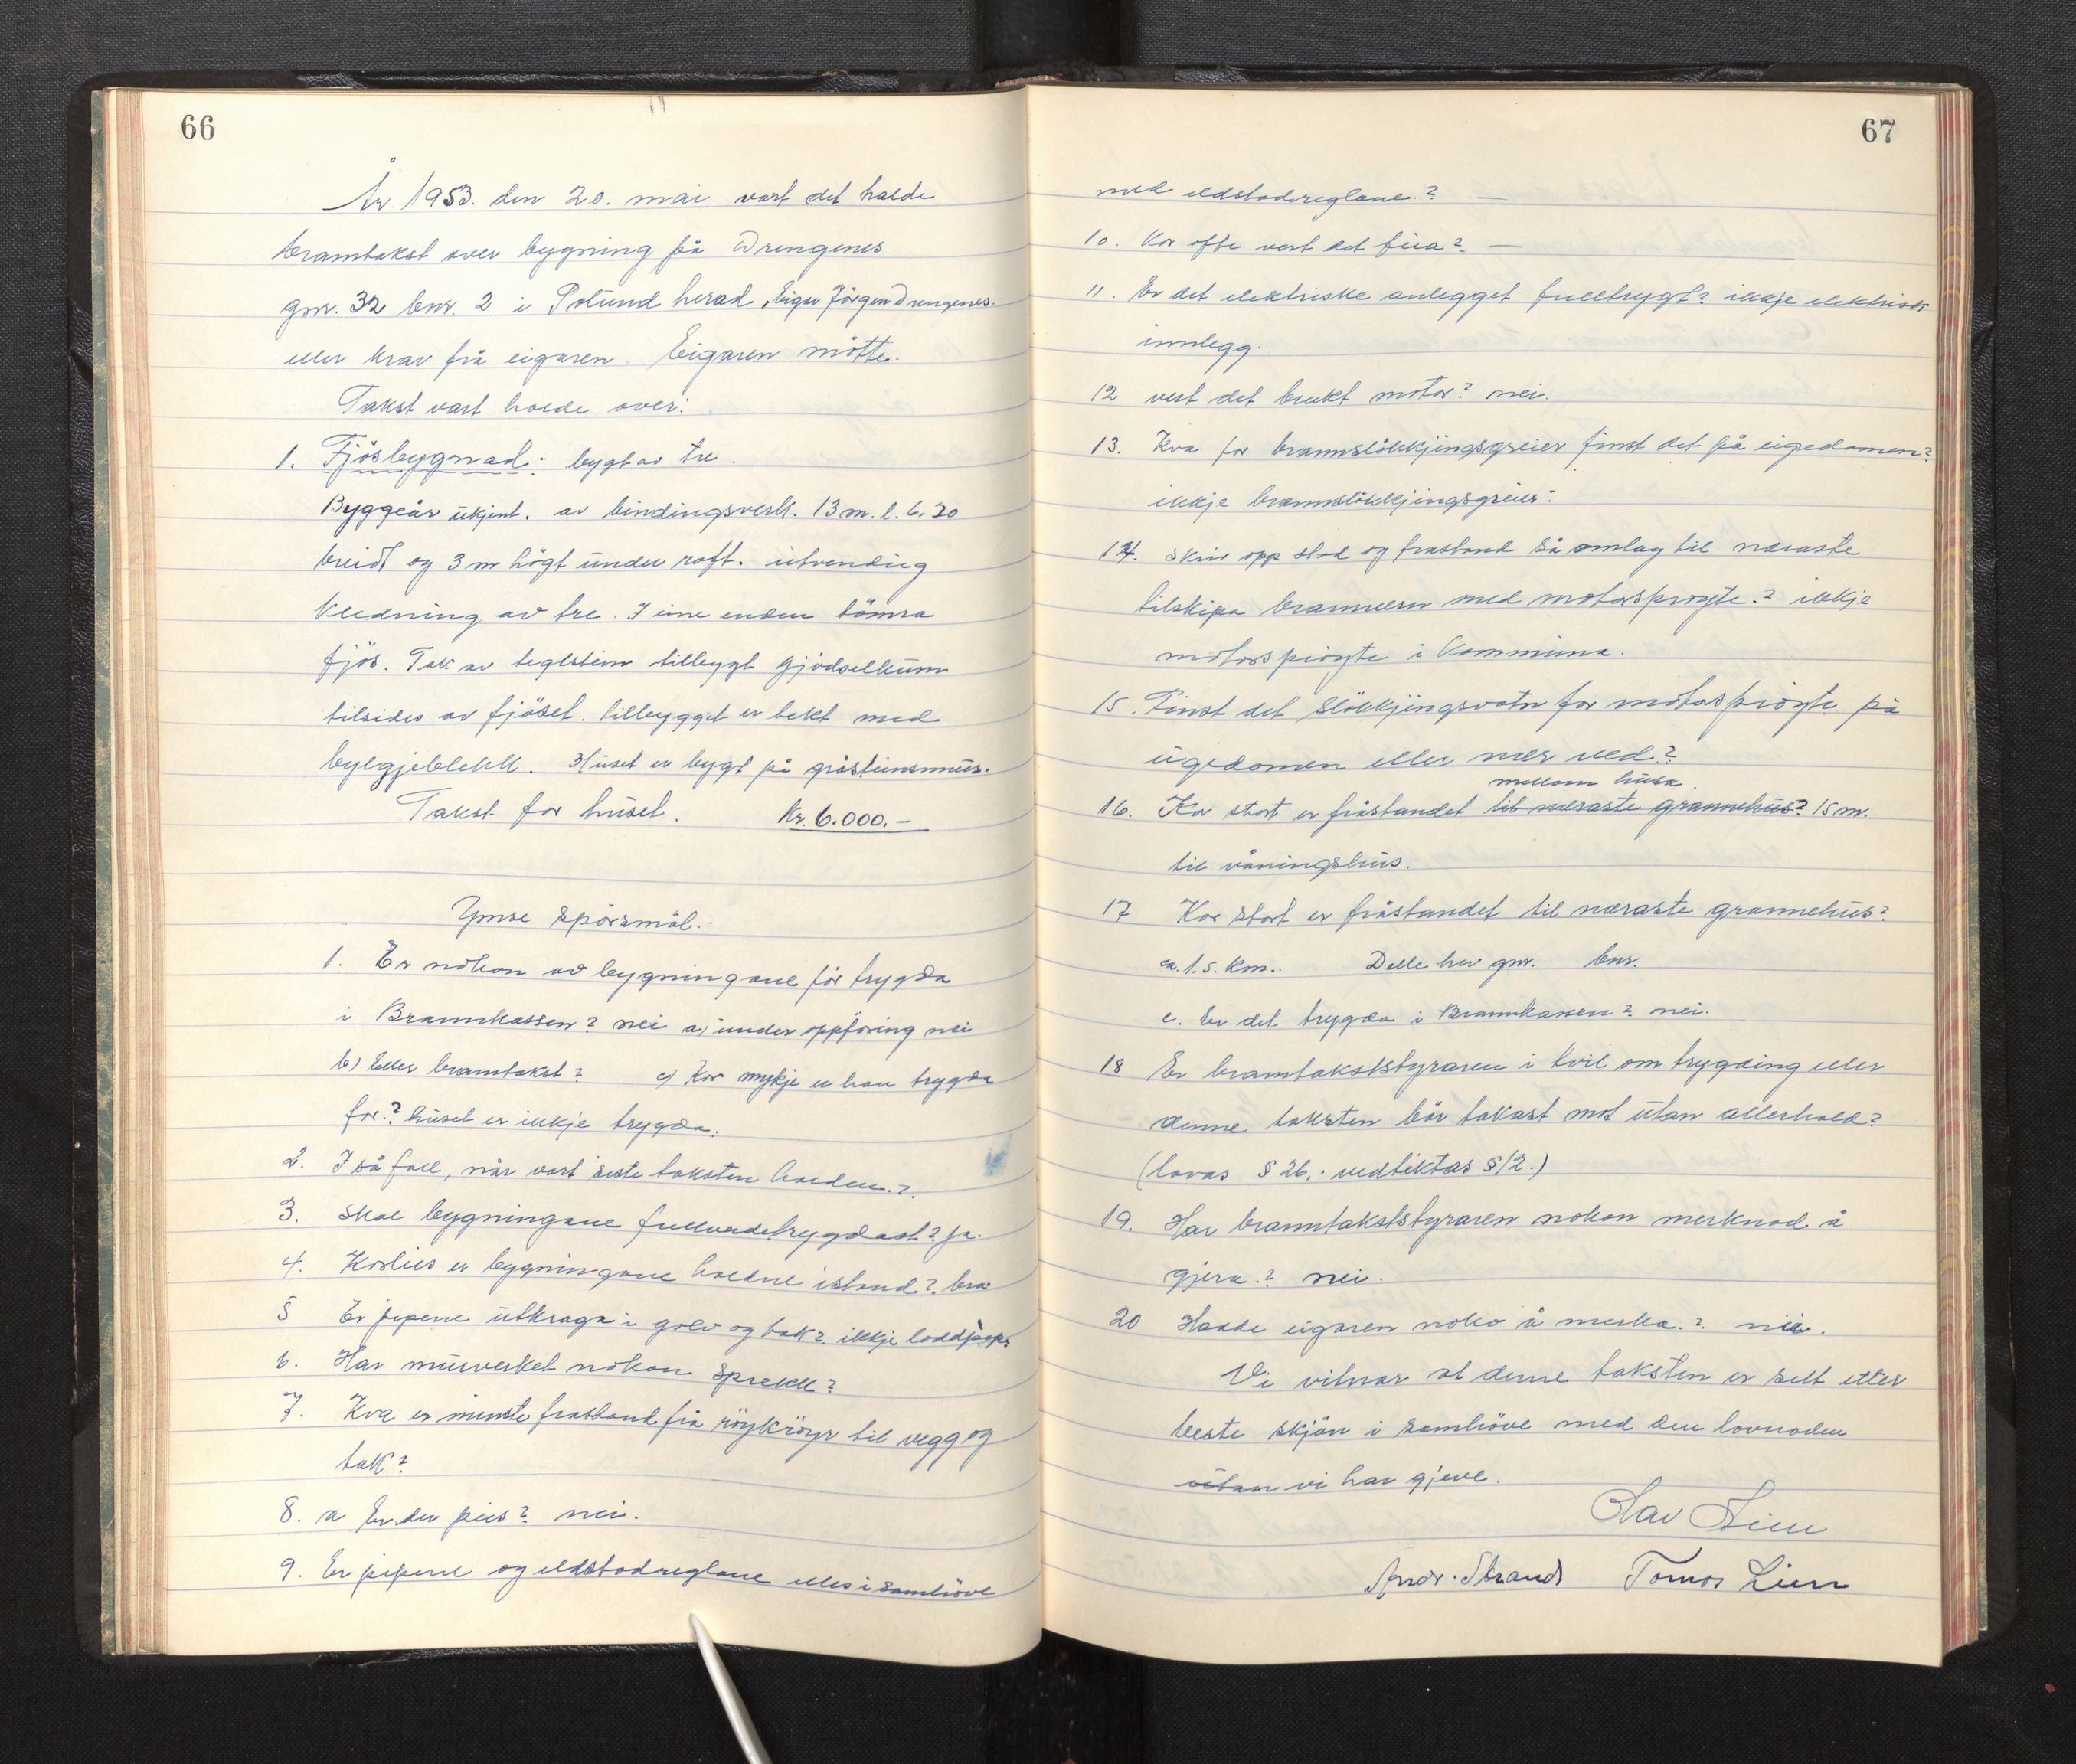 66
År 1953. den 20. mai vart det halde
branntakst over bygning på Drengenes
gnr. 32 bnr. 2 i Solund herad, Eigar Jörgen Drengenes.
eller krav frå eigaren. Eigaren mötte.
Takst vart halde over:
1. Fjösbygnad: bygt av tre.
Byggeår ukjent. av bindingsverk. 13 m. l. 6.30
breidt og 3 m högt under raft. utvendig
kledning av tre. I eine enden tömra
fjös. Tak av teglstein tilbygt gjödselkum
tilsides av fjöset. tilbygget er tekt med
bylgjeblekk. Huset er bygt på gråsteinsmur.
Takst for huset. Kr. 6.000.-
Ymse spörsmål.
1. Er nokon av bygningane för trygda
i Brannkassen? nei a) under oppföring nei
b) Eller branntakst? c) Kor mykje er han trygda
for? huset er ikkje trygda.
2. I så fall, når vart siste taksten halden.?
3. Skal bygningane fullverdetrygdast? ja.
4. Korleis er bygningane haldne istand? bra
5 Er pipene utkraga i golv og tak? ikkje loddpipe.
6. Har murverket nokon sprekk?
7. Kva er minste frastand frå röykröyr til vegg og
tak?
8. a Er der peis? nei.
9. Er pipene og eldstadreglane elles i samhöve
67
med eldstadreglane.? —
10. Kor ofte vert det feia? —
11. Er det elektriske anlegget fulltrygt? ikkje elektrisk
innlegg.
12 vert det brukt motor? nei.
13. Kva for brannslökkjingsgreier finst det på eigedomen?
ikkje brannslökkjingsgreier.
14. Skriv opp stad og frastand så omlag til næraste
tilskipa brannvern med motorsprøyte.? ikkje
motorsprøyte i kommuna.
15. Finst det slökkjingsvatn for motorsprøyte på
eigedomen eller nær ved?
mellom husa.
16. Kor stort er fråstandet til næraste grannehus? 15 m.
til våningshus.
17 Kor stort er fråstandet til næraste grannehus?
ca. 1.5. km. Dette hev gnr. bnr.
c. Er det trygda i Brannkassen? nei.
18 Er branntakststyraren i tvil om trygding eller
denne taksten bör takast mot utan atterhald?
(lovas § 26.: vedtektas § 12.)
19. Har branntakststyraren nokon merknad å
gjera.? nei.
20 Hadde eigaren noko å merka.? nei.
Vi vitnar at denne taksten er sett etter
beste skjön i samhöve med den lovnaden
utan vi har gjeve.
Olav Lien
Andr. Strand Tomas Lien